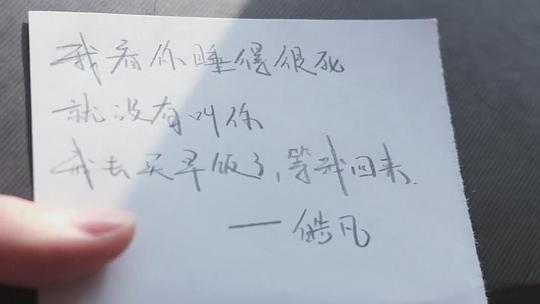 我看你睡得很死
就没有叫你
我去买早饭了,等我回来.
——皓凡